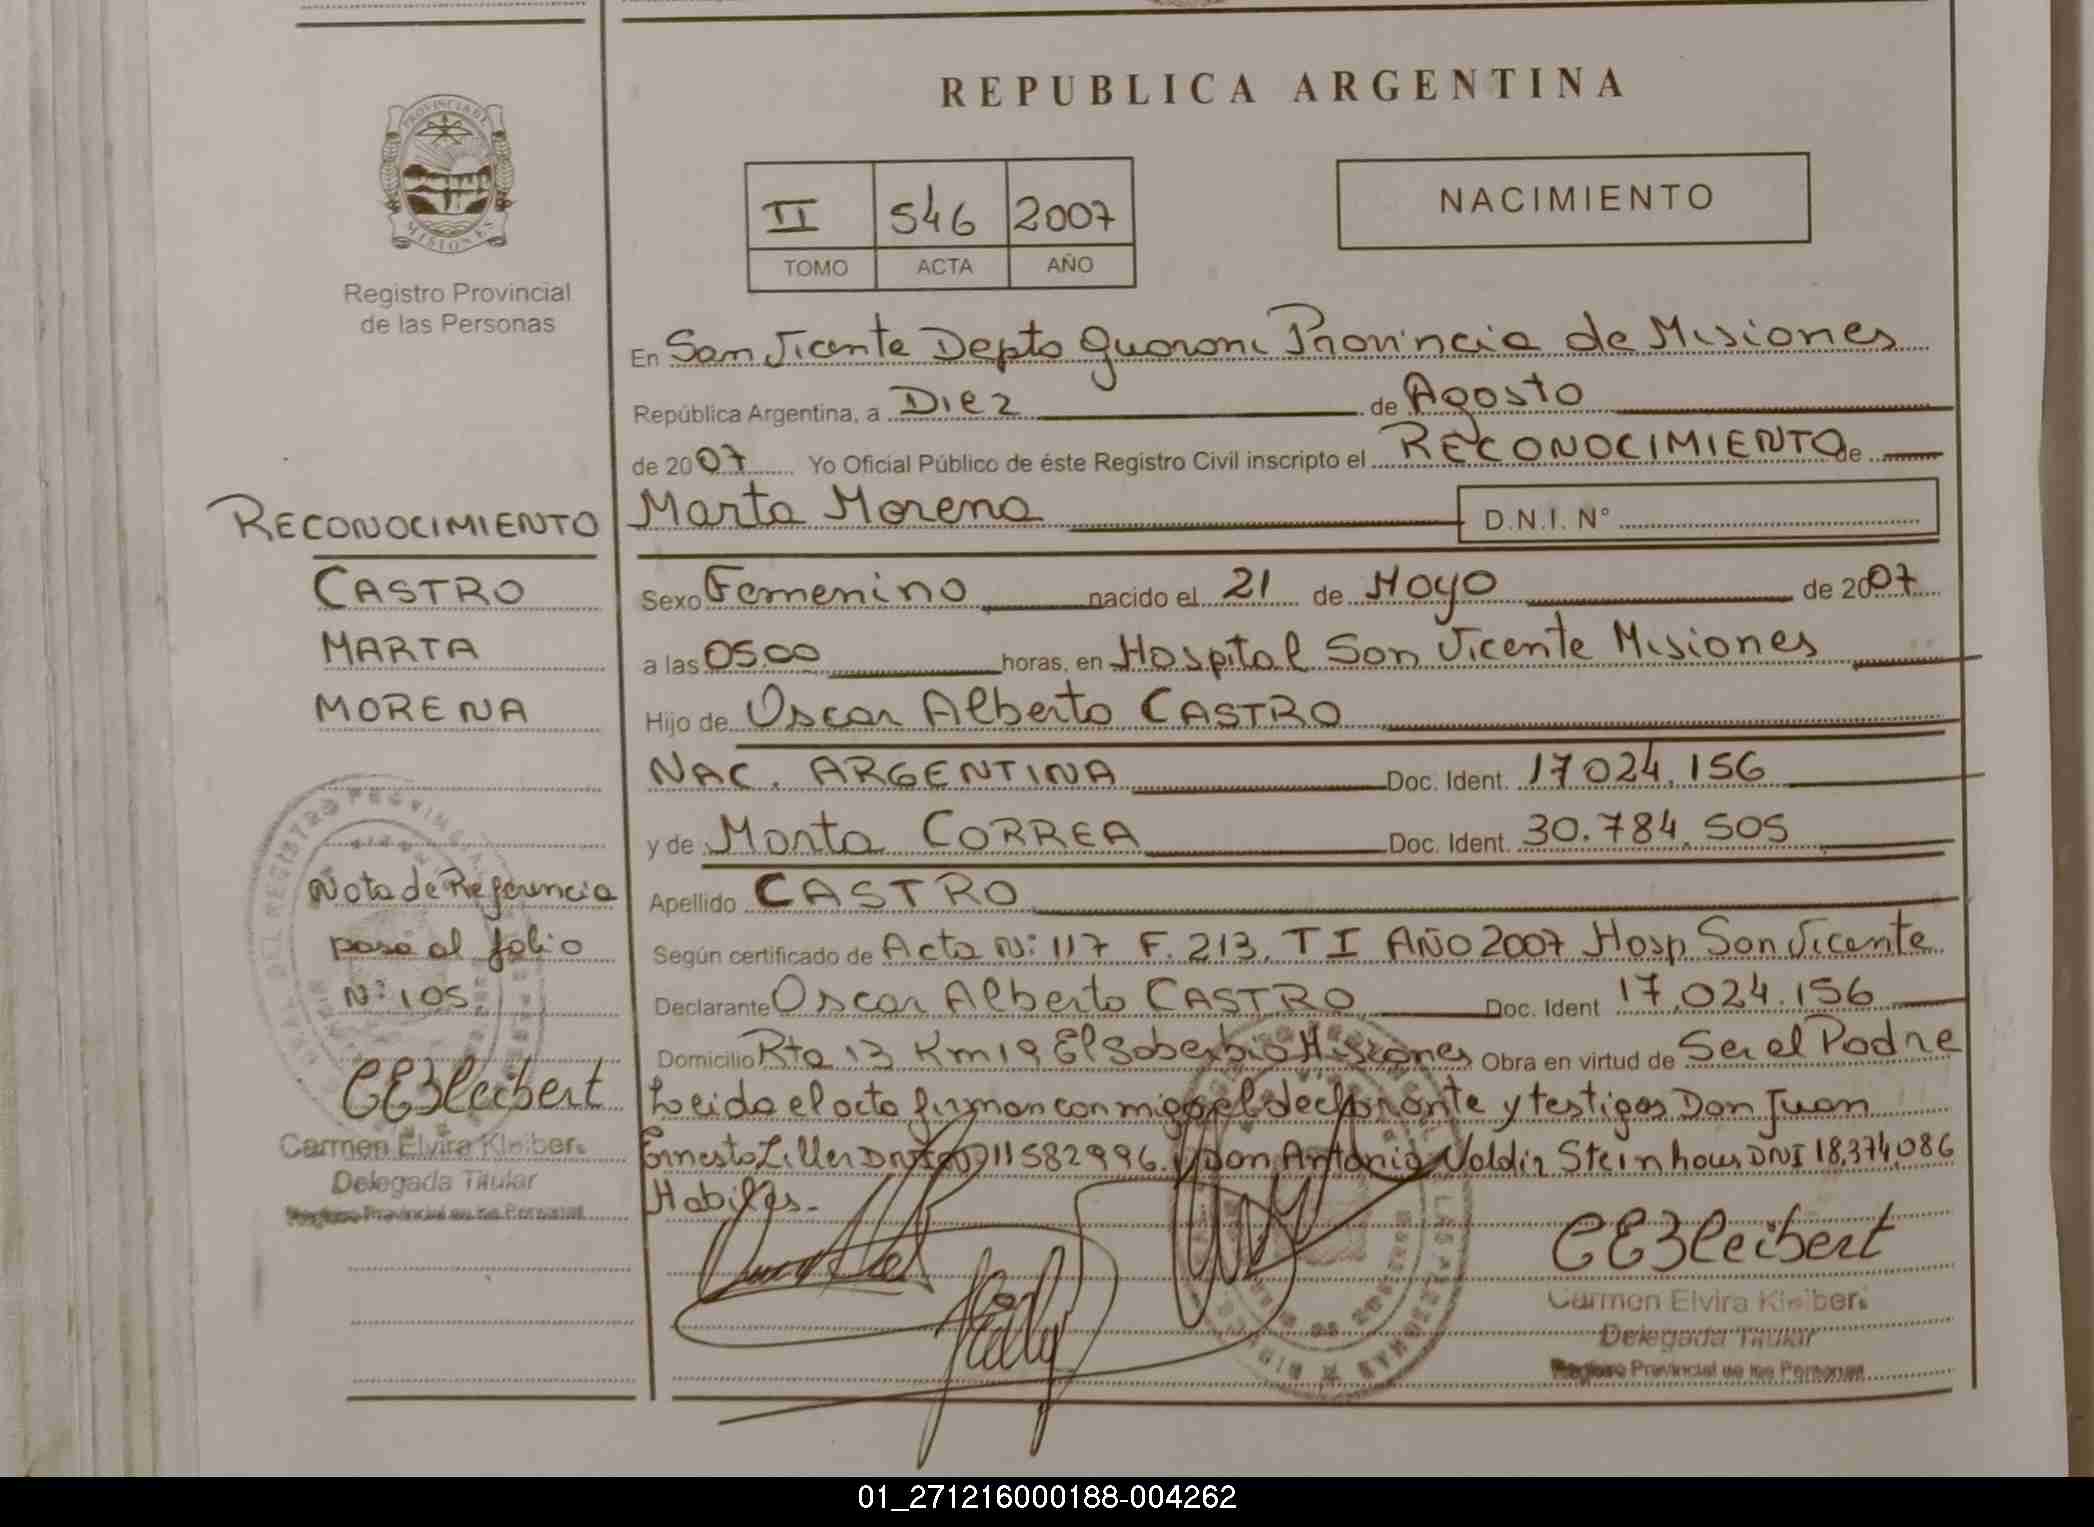 REPUBLICA ARGENTINA
PROVINCIA DE MISIONES
Registro Provincial
de las Personas
II 546 2007
TOMO ACTA AÑO
NACIMIENTO
En San Vicente Depto Guaraní Provincia de Misiones
República Argentina, a Diez de Agosto
de 2007 Yo Oficial Público de éste Registro Civil inscripto el RECONOCIMIENTO de
Marta Morena D.N.I. N°
Sexo Femenino nacido el 21 de Mayo de 2007
a las 05.00 horas, en Hospital San Vicente Misiones
Hijo de Oscar Alberto CASTRO
NAC. ARGENTINA Doc. Ident. 17024.156
y de Marta CORREA Doc. Ident. 30.784.505
Apellido CASTRO
Según certificado de Acta N: 117 F. 213. T I AÑO 2007 Hosp San Vicente
Declarante Oscar Alberto CASTRO Doc. Ident 17.024.156
Domicilio Rta 13 Km 19 El Soberbio Misiones Obra en virtud de Ser el Padre
Leida el acta firman conmigo el declarante y testigos Don Juan
Ernesto Ziller DNI 11582996. y Don Antonio Valdir Steinhaus DNI 18.374.086
Habiles.-
CEKleibert
Carmen Elvira Kleiber
Delegada Titular
Registro Provincial de las Personas
RECONOCIMIENTO
CASTRO
MARTA
MORENA
Nota de Referencia
pasa al folio
N: 105
CEKleibert
Carmen Elvira Kleiber
Delegada Titular
Registro Provincial de las Personas
01_271216000188-004262